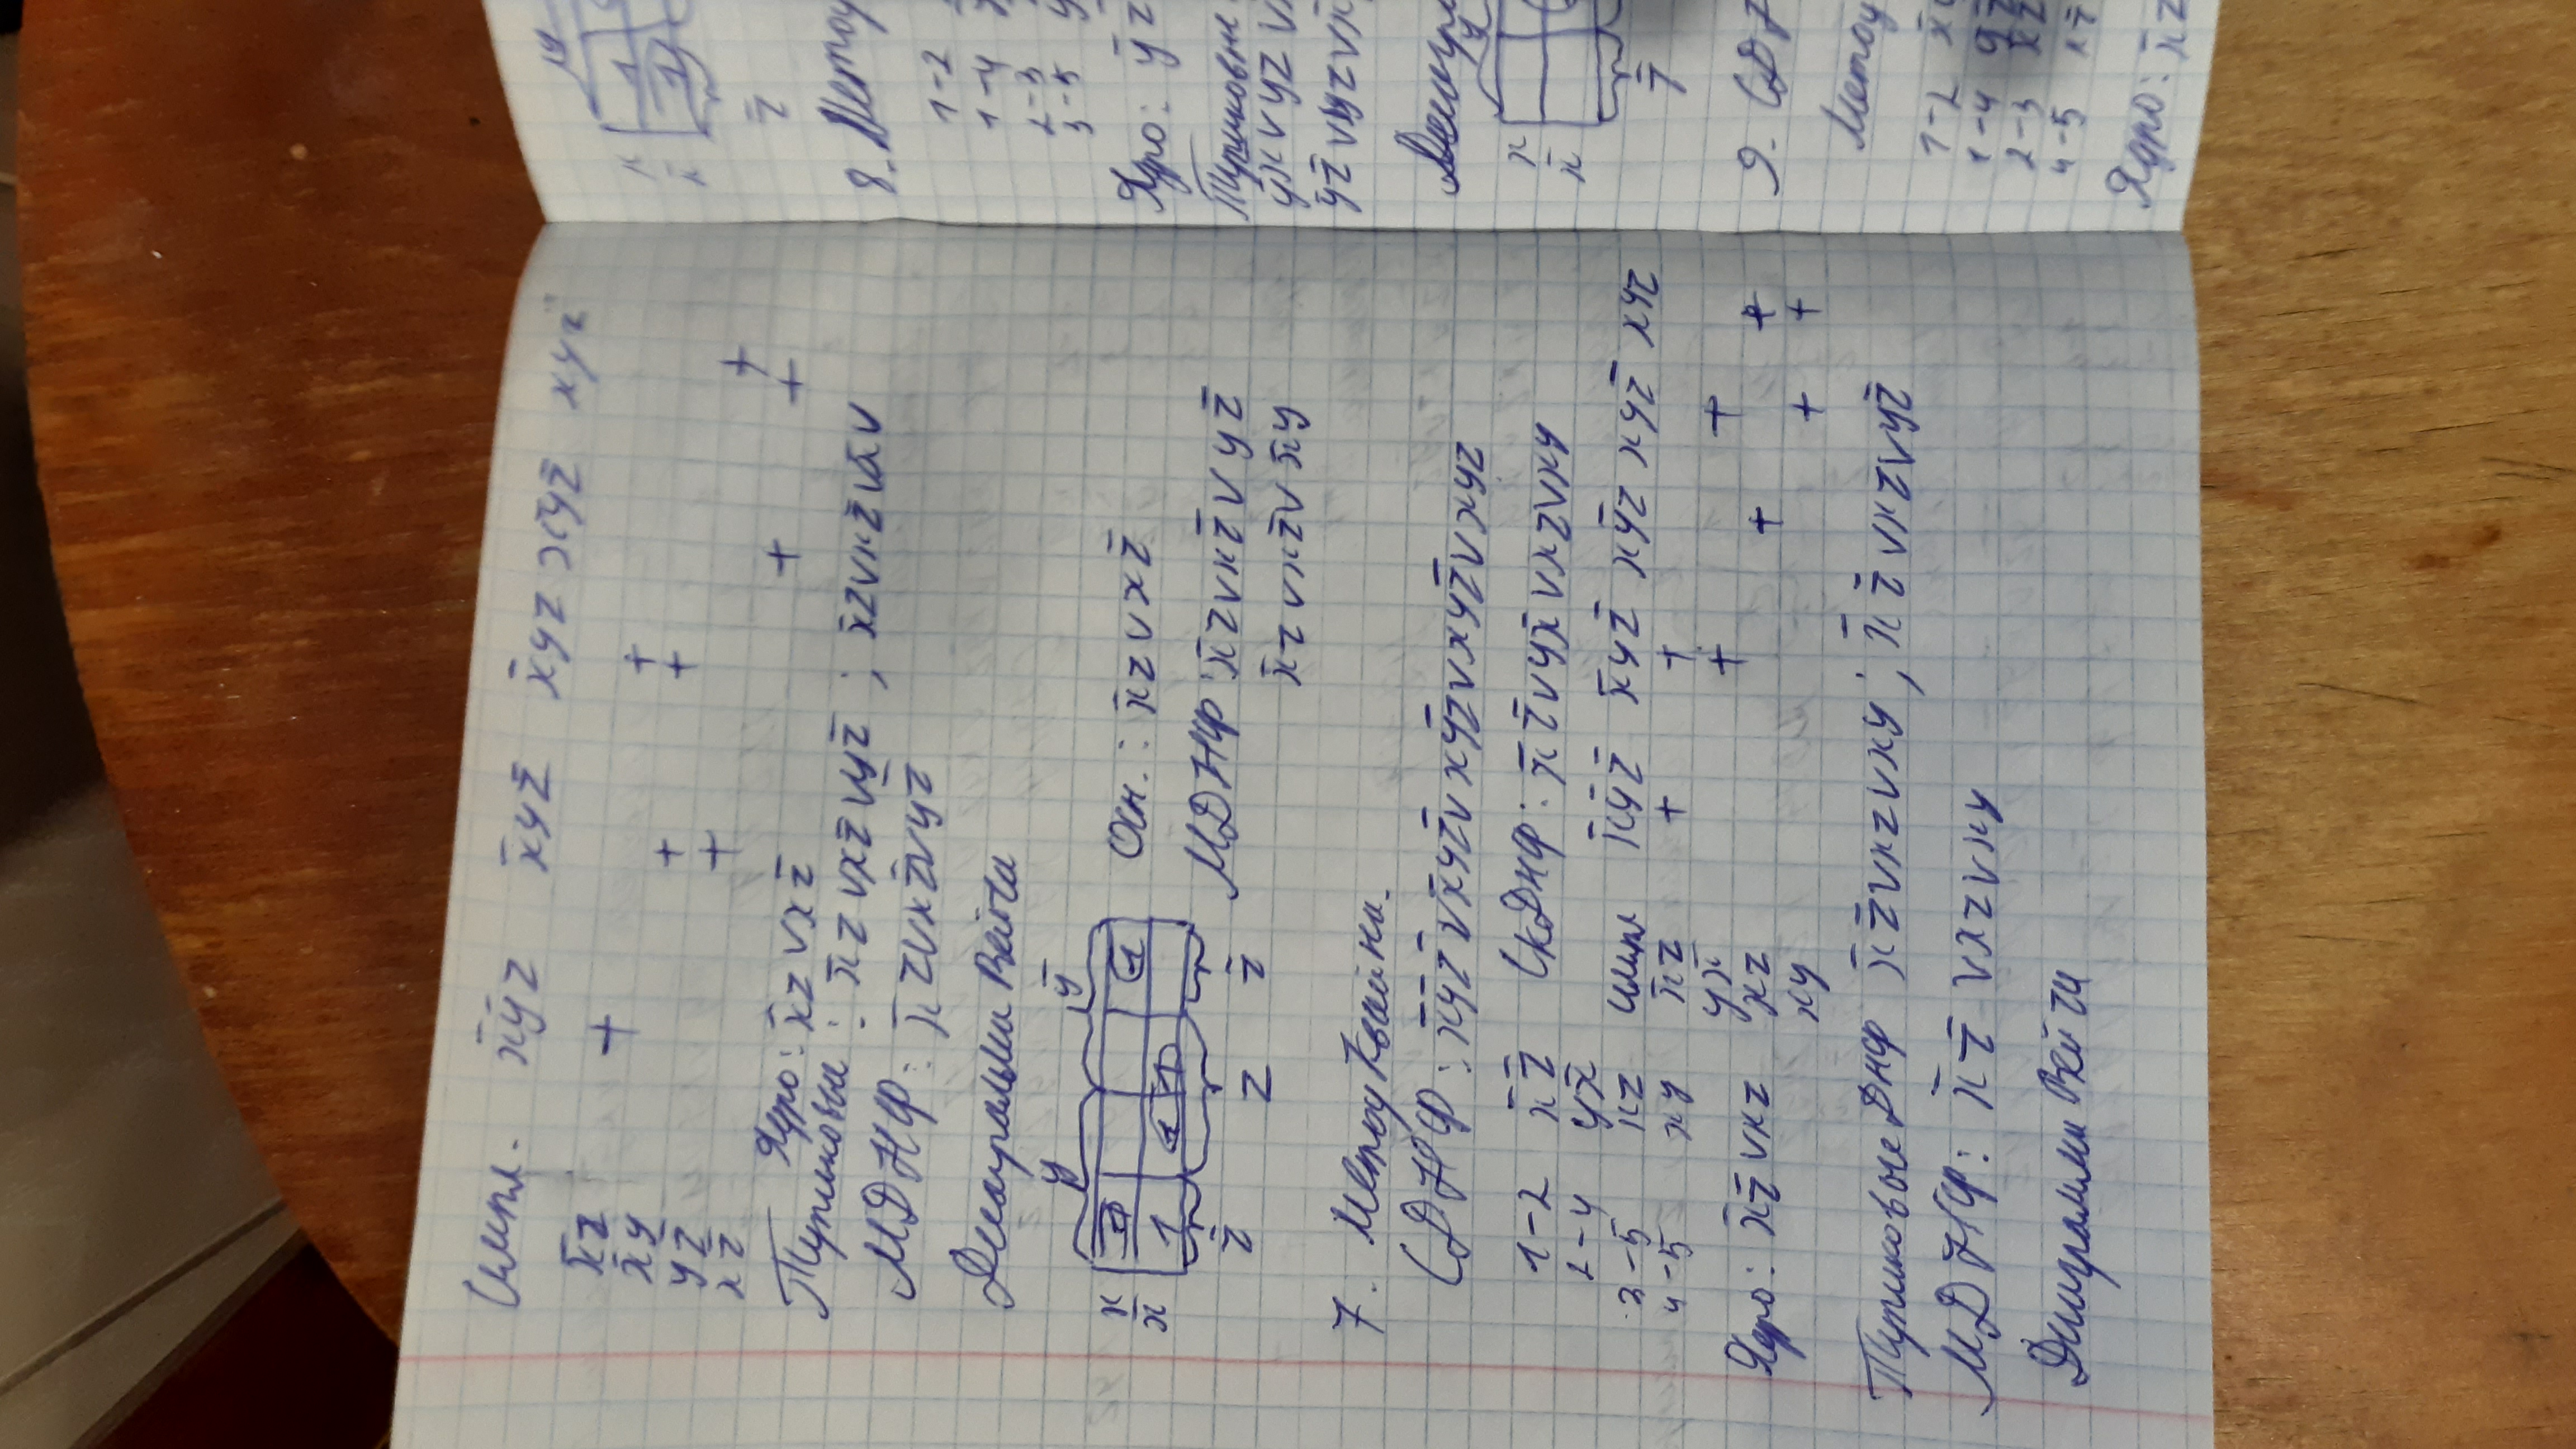 Импл. x̄ȳz x̄yz̄ x̄yz xȳz̄ xyz̄
x̄z + +
x̄y + +
yz̄ + +
xz̄ + +
Ядро: x̄z ∨ xz̄
Тупиковые: x̄z ∨ xz̄ ∨ yz̄ ; x̄z ∨ xz̄ ∨
МДНФ: x̄z ∨ xz̄ ∨ yz̄
Диаграмма Вейча
y ȳ
x 1 1
x̄ 1 1 1
z̄ z z̄
Осн.: x̄z ∨ xz̄
МДНФ: x̄z ∨ xz̄ ∨ yz̄
x̄z ∨ xz̄ ∨ x̄y
7. Метод Квайна.
СДНФ: x̄ȳz̄ ∨ x̄yz̄ ∨ xȳz ∨ xyz̄ ∨ xyz
1-2 x̄z̄ СкДНФ: x̄z̄ ∨ yx̄ ∨ xz ∨ xy
2-4 yx̄
3-5 xz импл x̄ȳz̄ x̄yz̄ xȳz xyz̄ xyz
4-5 xy x̄z̄ + +
yx̄ + +
Ядро: x̄z̄ ∨ xz xz + +
xy + +
Тупиковые ДНФ x̄z̄ ∨ xz ∨ xy ; x̄z̄ ∨ xz ∨ yz̄
МДНФ: x̄z̄ ∨ xz ∨ xy
Диаграмма Вейча
y
x 1
x̄ 1
z̄
8. Метод
1-2
1-4
2-3
3-5 y
Ядро: ȳz̄
Тупиковые
ȳx ∨ yz ∨
ȳz̄ ∨ yz ∨ x̄
y
x
x̄
z̄
9. СД
Метод
1-2 x̄
1-4
2-3
4-5
Ядро: x̄z